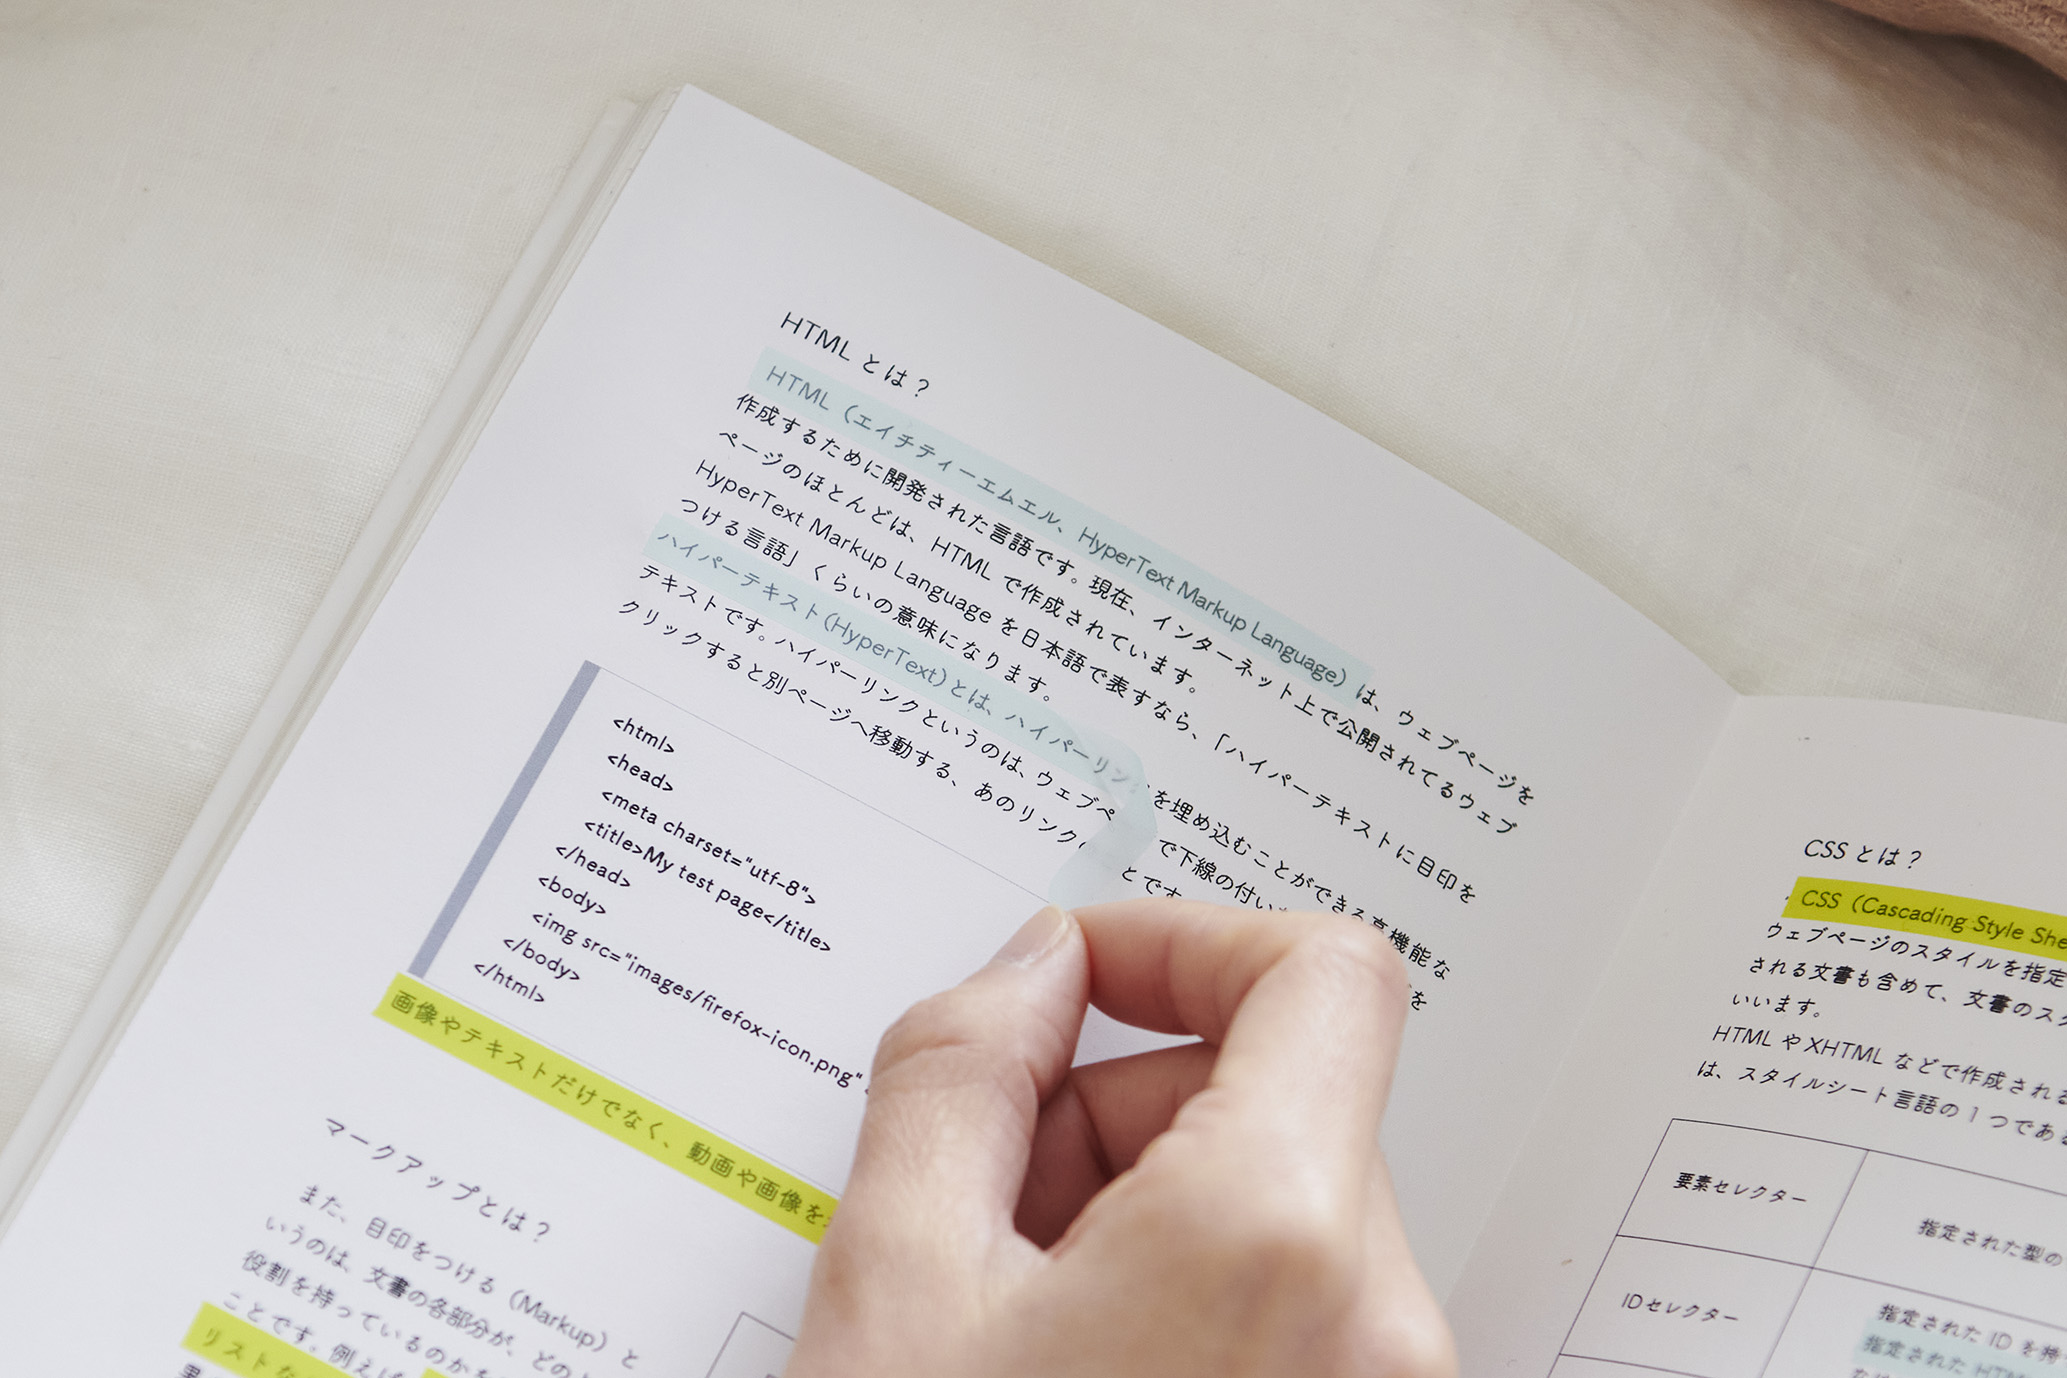 HTML とは？
HTML（エイチティーエムエル、HyperText Markup Language）は、ウェブページを
作成するために開発された言語です。現在、インターネット上で公開されてるウェブ
ページのほとんどは、HTML で作成されています。
HyperText Markup Language を日本語で表すなら、「ハイパーテキストに目印を
つける言語」くらいの意味になります。
ハイパーテキスト(HyperText)とは、ハイパーリン を埋め込むことができる高機能な
テキストです。ハイパーリンクというのは、ウェブペ で下線の付い を
クリックすると別ページへ移動する、あのリンク とです
<html>
<head>
<meta charset="utf-8">
<title>My test page</title>
</head>
<body>
<img src="images/firefox-icon.png"
</body>
</html>
画像やテキストだけでなく、動画や画像を
マークアップとは？
また、目印をつける（Markup）と
いうのは、文書の各部分が、どの
役割を持っているのかを
ことです。例えば
リストな
CSS とは？
CSS（Cascading Style She
ウェブページのスタイルを指定
される文書も含めて、文書のス
いいます。
HTML や XHTML などで作成される
は、スタイルシート言語の 1 つであ
要素セレクター
指定された型の
IDセレクター
指定された ID を持
指定された HTM